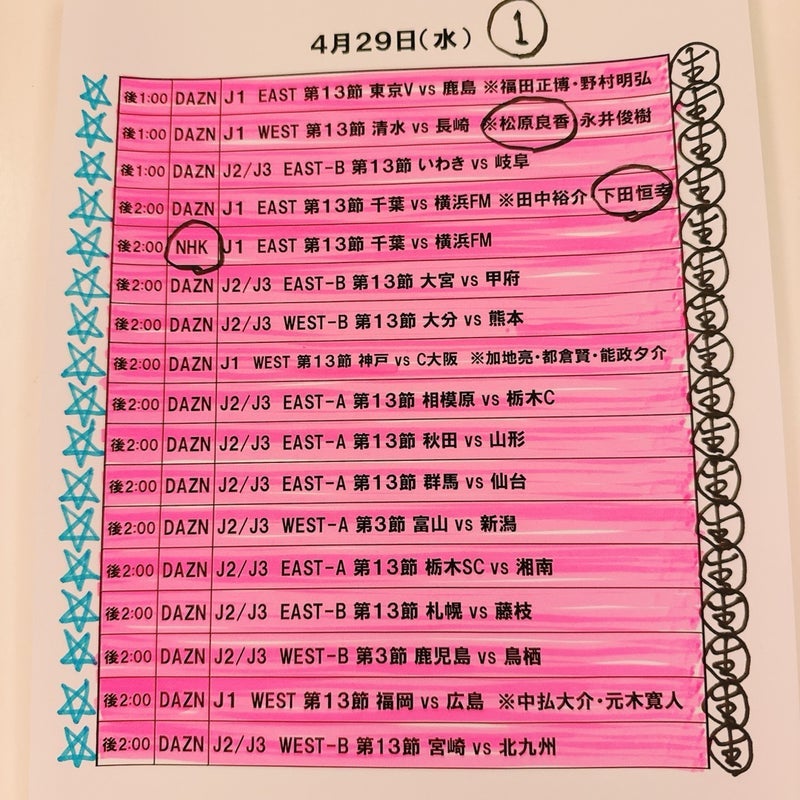 4月29日(水) 1
後1:00 DAZN J1 EAST 第13節 東京V vs 鹿島 ※福田正博・野村明弘 生
後1:00 DAZN J1 WEST 第13節 清水 vs 長崎 ※松原良香 永井俊樹 生
後1:00 DAZN J2/J3 EAST-B 第13節 いわき vs 岐阜 生
後2:00 DAZN J1 EAST 第13節 千葉 vs 横浜FM ※田中裕介 下田恒幸 生
後2:00 NHK J1 EAST 第13節 千葉 vs 横浜FM 生
後2:00 DAZN J2/J3 EAST-B 第13節 大宮 vs 甲府 生
後2:00 DAZN J2/J3 WEST-B 第13節 大分 vs 熊本 生
後2:00 DAZN J1 WEST 第13節 神戸 vs C大阪 ※加地亮・都倉賢・能政夕介 生
後2:00 DAZN J2/J3 EAST-A 第13節 相模原 vs 栃木C 生
後2:00 DAZN J2/J3 EAST-A 第13節 秋田 vs 山形 生
後2:00 DAZN J2/J3 EAST-A 第13節 群馬 vs 仙台 生
後2:00 DAZN J2/J3 WEST-A 第3節 富山 vs 新潟 生
後2:00 DAZN J2/J3 EAST-A 第13節 栃木SC vs 湘南 生
後2:00 DAZN J2/J3 EAST-B 第13節 札幌 vs 藤枝 生
後2:00 DAZN J2/J3 WEST-B 第3節 鹿児島 vs 鳥栖 生
後2:00 DAZN J1 WEST 第13節 福岡 vs 広島 ※中払大介・元木寛人 生
後2:00 DAZN J2/J3 WEST-B 第13節 宮崎 vs 北九州 生